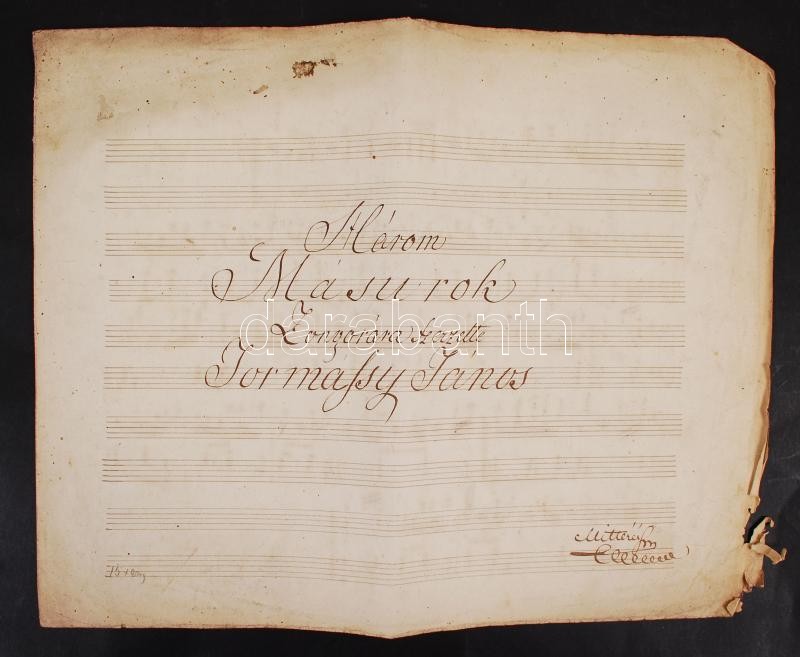 Három
Másurok
Zongorára szerzette
Tormaſsy János
darabanth